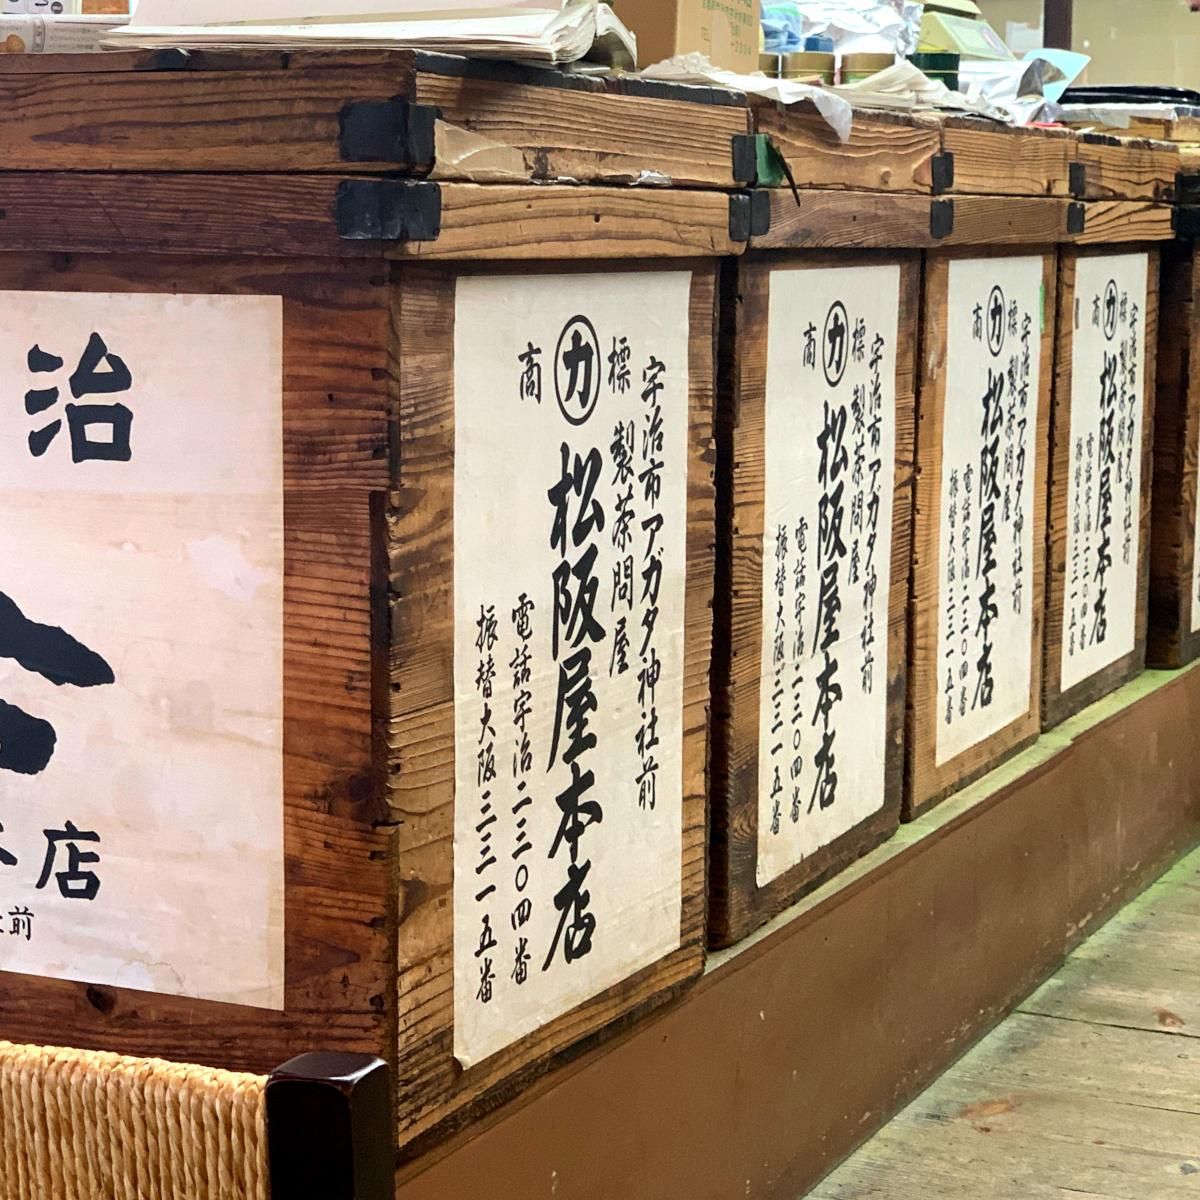 治
店
前
商 カ 標
宇治市アガタ神社前
製茶問屋
松阪屋本店
電話宇治二三〇四番
振替大阪三三一五番
商 カ 標
宇治市アガタ神社前
製茶問屋
松阪屋本店
電話宇治二三〇四番
振替大阪三三一五番
商 カ 標
宇治市アガタ神社前
製茶問屋
松阪屋本店
電話宇治二三〇四番
振替大阪三三一五番
商 カ 標
宇治市アガタ神社前
製茶問屋
松阪屋本店
電話宇治二三〇四番
振替大阪三三一五番